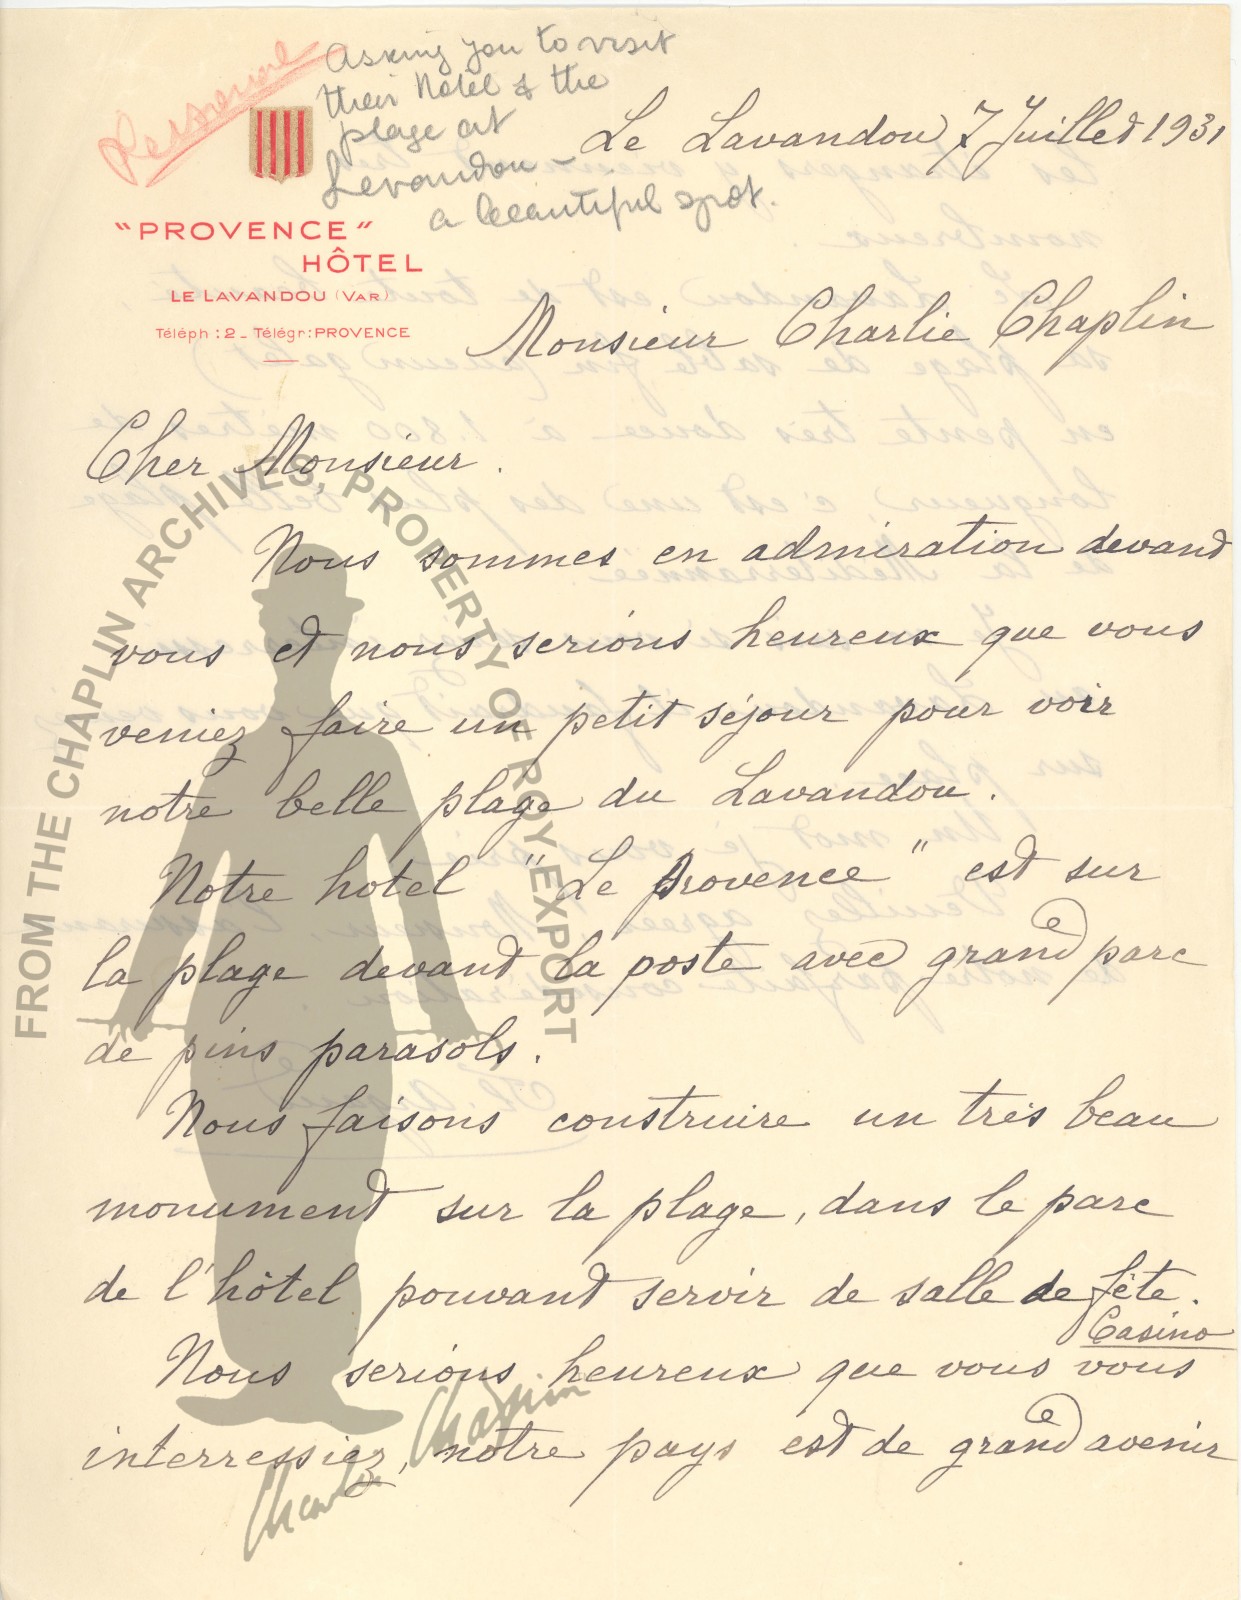 Personal
Asking you to visit
their Hotel & the
plage at
Levandou –
a beautiful spot.
"PROVENCE"
HÔTEL
LE LAVANDOU (VAR)
Téléph : 2 - Télégr: PROVENCE
Le Lavandou 7 Juillet 1931
Monsieur Charlie Chaplin
Cher Monsieur.
Nous sommes en admiration devant
vous et nous serions heureux que vous
veniez faire un petit séjour pour voir
notre belle plage du Lavandou.
Notre hotel "Le Provence" est sur
la plage devant la poste avec grand parc
de pins parasols.
Nous faisons construire un très beau
monument sur la plage, dans le parc
de l'hôtel pouvant servir de salle de fête.
Casino
Nous serions heureux que vous vous
interressiez, notre pays est de grand avenir
FROM THE CHAPLIN ARCHIVES, PROPERTY OF ROY EXPORT
Charlie Chaplin